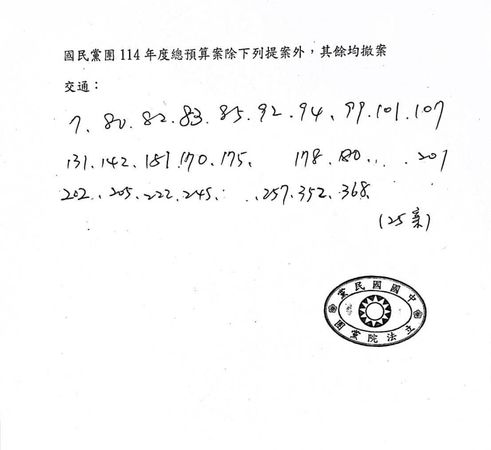 國民黨團114年度總預算案除下列提案外，其餘均撤案
交通：
7、80、82、83、85、92、94、99、101、107
131、142、151、170、175、 178、180、、 、201
202、、205、222、245、 、257、352、368、
(25案)
中國國民黨
立法院黨團